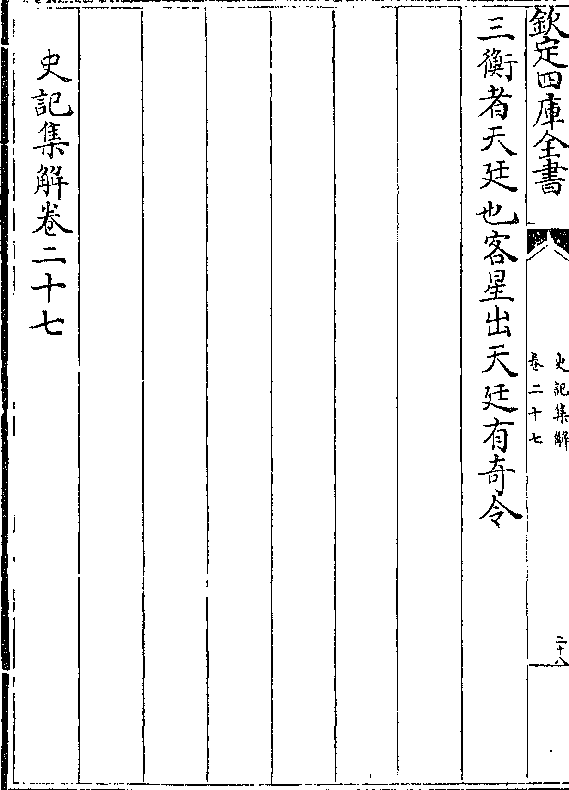 欽定四庫全書
史記集解
卷二十七
二十八
三衡者天廷也客星出天廷有奇令
史記集解卷二十七